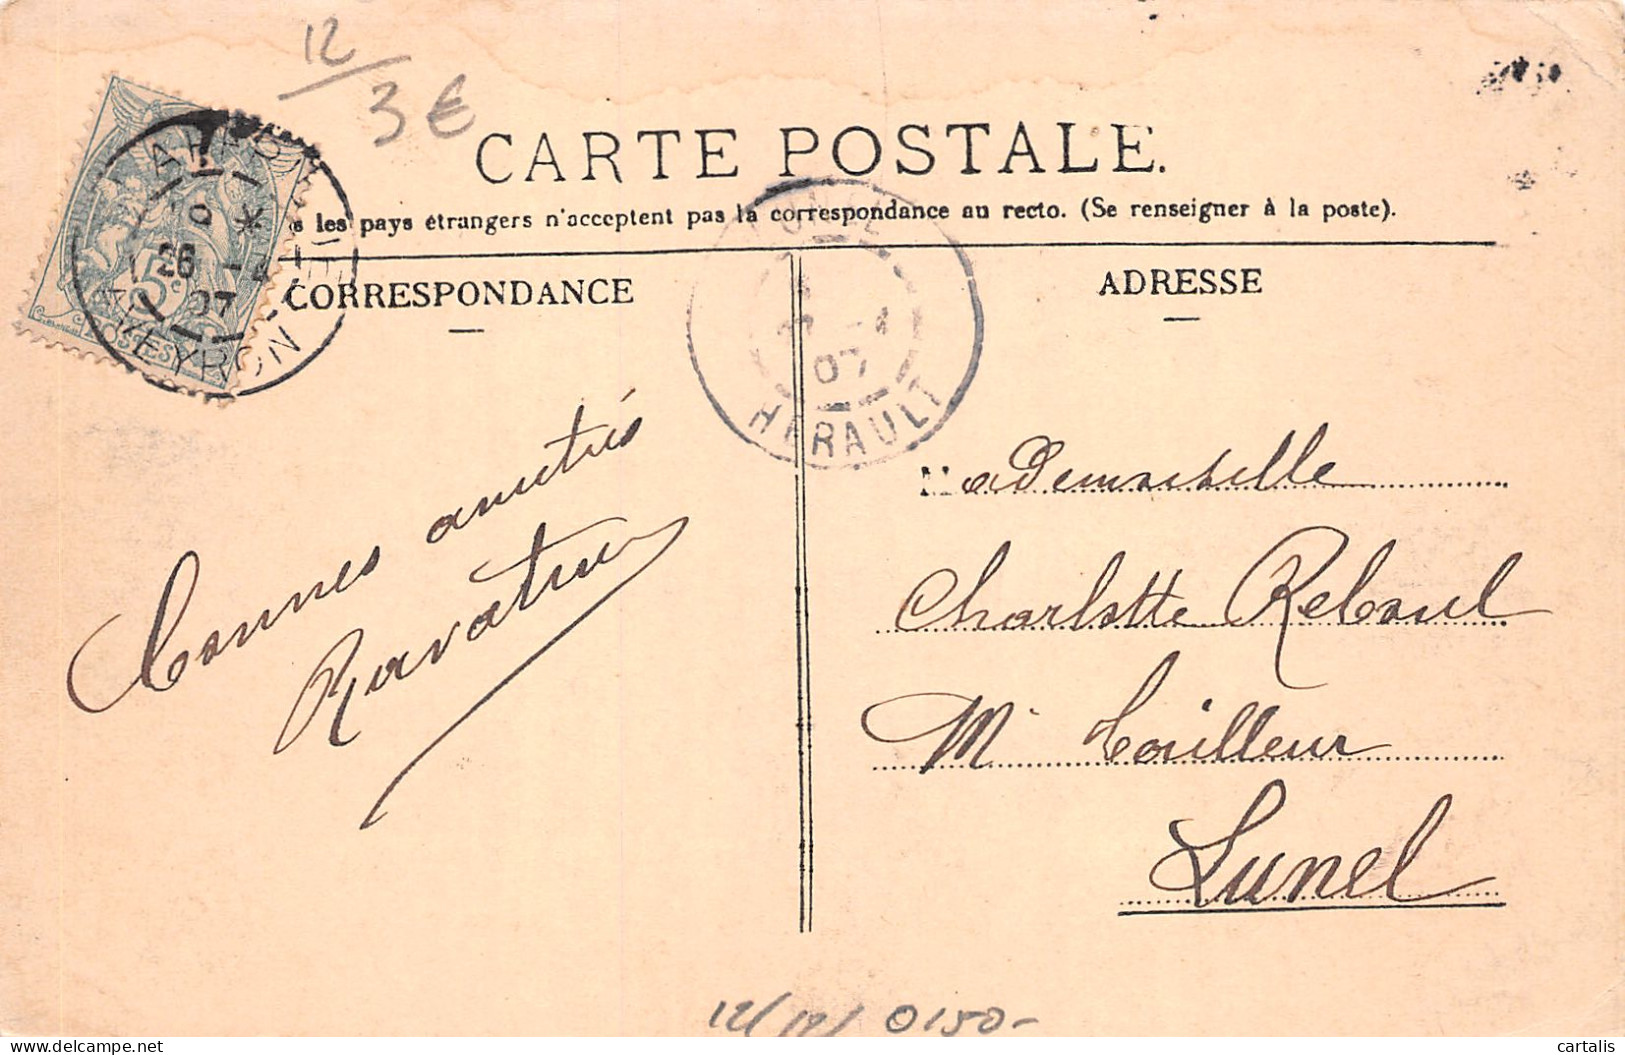 12/
3 €
CARTE POSTALE.
les pays étrangers n'acceptent pas la correspondance au recto. (Se renseigner à la poste).
CORRESPONDANCE
ADRESSE
26 - 4
07
AVEYRON
5c
POSTES
07
HÉRAULT
Bonnes amitiés
Mademoiselle
Charlotte Reboul
M. Tailleur
Lunel
12/12/ 0150-
cartalis
delcampe.net